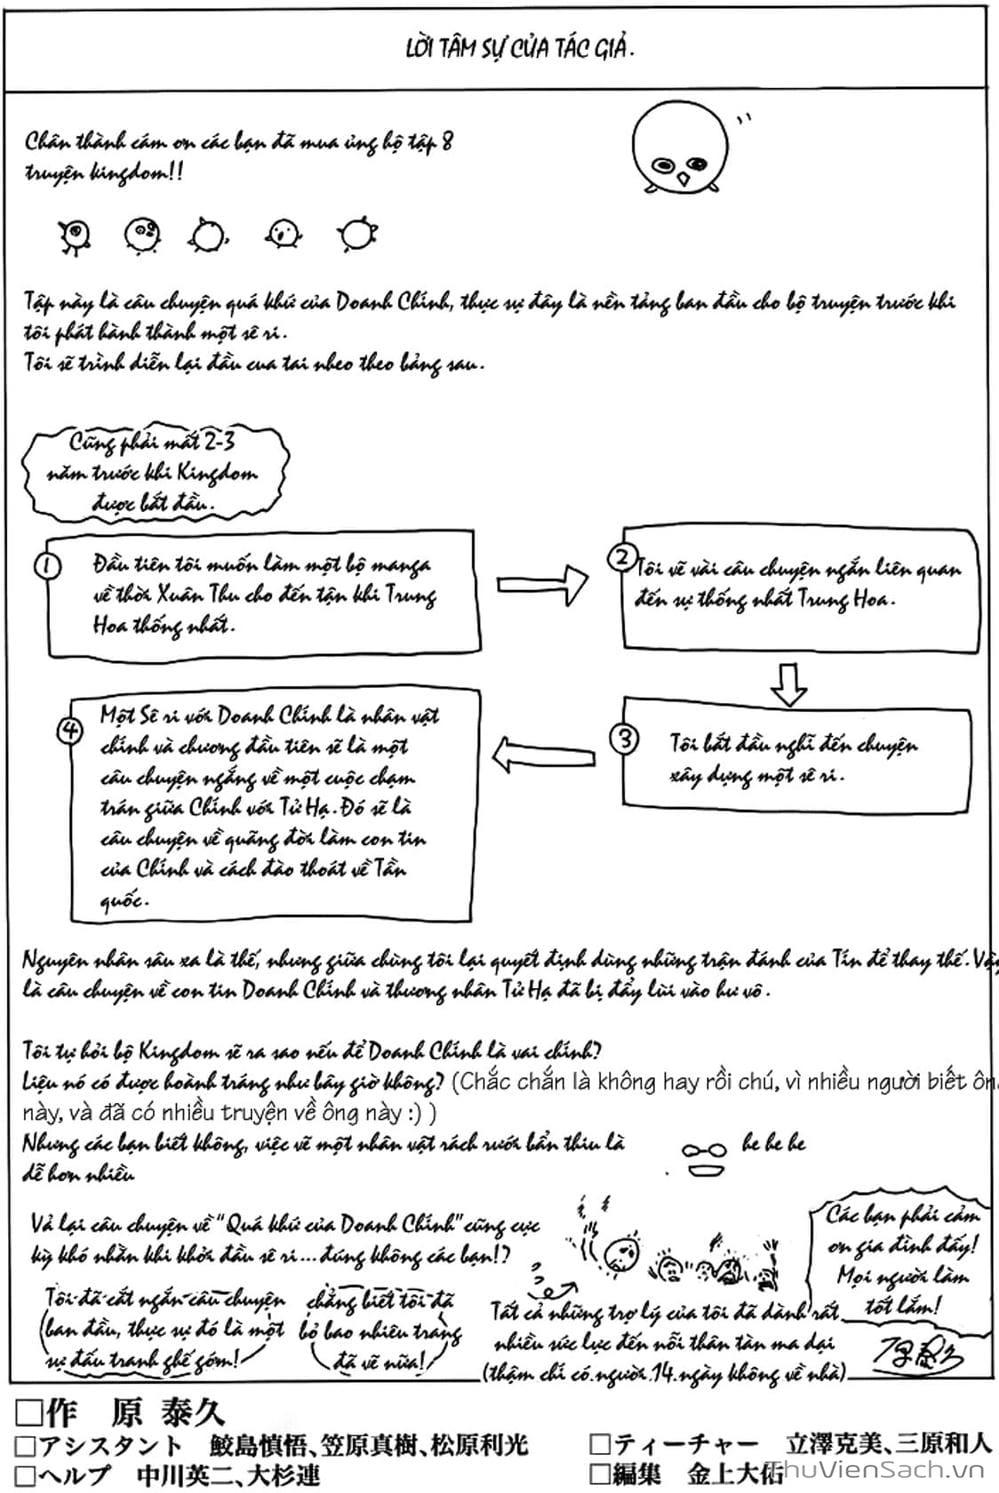 LỜI TÂM SỰ CỦA TÁC GIẢ.
Chân thành cám ơn các bạn đã mua ủng hộ tập 8
truyện kingdom!!
Tập này là câu chuyện quá khứ của Doanh Chính, thực sự đây là nền tảng ban đầu cho bộ truyện trước khi
tôi phát hành thành một sê ri.
Tôi sẽ trình diễn lại đầu cua tai nheo theo bảng sau.
Cũng phải mất 2-3
năm trước khi Kingdom
được bắt đầu.
1
Đầu tiên tôi muốn làm một bộ manga
về thời Xuân Thu cho đến tận khi Trung
Hoa thống nhất.
2
Tôi vẽ vài câu chuyện ngắn liên quan
đến sự thống nhất Trung Hoa.
3
Tôi bắt đầu nghĩ đến chuyện
xây dựng một sê ri.
4
Một Sê ri với Doanh Chính là nhân vật
chính và chương đầu tiên sẽ là một
câu chuyện ngắng về một cuộc chạm
trán giữa Chính với Tử Hạ. Đó sẽ là
câu chuyện về quãng đời làm con tin
của Chính và cách đào thoát về Tần
quốc.
Nguyên nhân sâu xa là thế, nhưng giữa chừng tôi lại quyết định dùng những trận đánh của Tín để thay thế. Vậy
là câu chuyện về con tin Doanh Chính và thương nhân Tử Hạ đã bị đẩy lùi vào hư vô.
Tôi tự hỏi bộ Kingdom sẽ ra sao nếu để Doanh Chính là vai chính?
Liệu nó có được hoành tráng như bây giờ không? (Chắc chắn là không hay rồi chú, vì nhiều người biết ông
này, và đã có nhiều truyện về ông này :) )
Nhưng các bạn biết không, việc vẽ một nhân vật rách rưới bẩn thiu là
dễ hơn nhiều
he he he
Vả lại câu chuyện về "Quá khứ của Doanh Chính" cũng cực
kỳ khó nhằn khi khởi đầu sê ri... đúng không các bạn!?
Tôi đã cắt ngắn câu chuyện
ban đầu, thực sự đó là một
sự đấu tranh ghê góm!
chẳng biết tôi đã
bỏ bao nhiêu trang
đã vẽ nữa!
Tất cả những trợ lý của tôi đã dành rất
nhiều sức lực đến nỗi thân tàn ma dại
(thậm chí có người 14 ngày không về nhà)
Các bạn phải cảm
ơn gia đình đấy!
Mọi người làm
tốt lắm!
□作 原 泰久
□アシスタント 鮫島慎悟、笠原真樹、松原利光
□ヘルプ 中川英二、大杉連
□ティーチャー 立澤克美、三原和人
□編集 金上大佑
ThuVienSach.vn